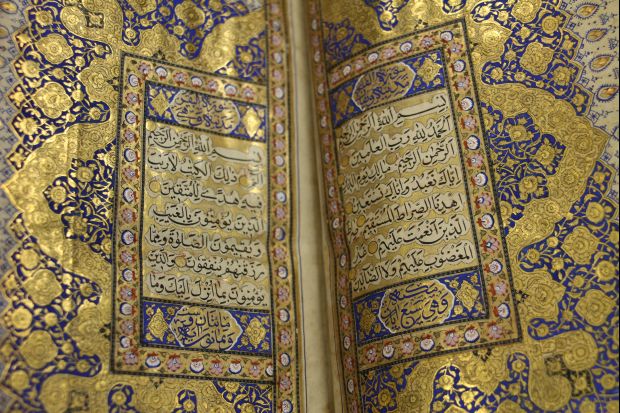 بِسْمِ اللَّهِ الرَّحْمَٰنِ الرَّحِيمِ
الْحَمْدُ لِلَّهِ رَبِّ الْعَالَمِينَ
الرَّحْمَٰنِ الرَّحِيمِ مَالِكِ يَوْمِ
الدِّينِ إِيَّاكَ نَعْبُدُ وَإِيَّاكَ نَسْتَعِينُ
اهْدِنَا الصِّرَاطَ الْمُسْتَقِيمَ صِرَاطَ
الَّذِينَ أَنْعَمْتَ عَلَيْهِمْ غَيْرِ
الْمَغْضُوبِ عَلَيْهِمْ وَلَا الضَّالِّينَ
مكية
وهي سبع آيات
سورة البقرة
بِسْمِ اللَّهِ الرَّحْمَٰنِ الرَّحِيمِ
الم ذَٰلِكَ الْكِتَابُ لَا رَيْبَ
فِيهِ هُدًى لِلْمُتَّقِينَ
الَّذِينَ يُؤْمِنُونَ بِالْغَيْبِ
وَيُقِيمُونَ الصَّلَوٰةَ وَمِمَّا
رَزَقْنَاهُمْ يُنْفِقُونَ وَالَّذِينَ
يُؤْمِنُونَ بِمَا أُنْزِلَ إِلَيْكَ وَمَا
مائتان وست
وثمانون آيات